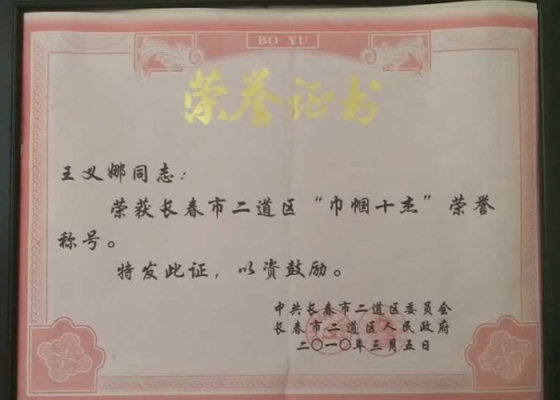 BO YU
荣誉证书
王义娜同志：
荣获长春市二道区“巾帼十杰”荣誉
称号。
特发此证，以资鼓励。
中共长春市二道区委员会
长春市二道区人民政府
二〇一〇年三月五日